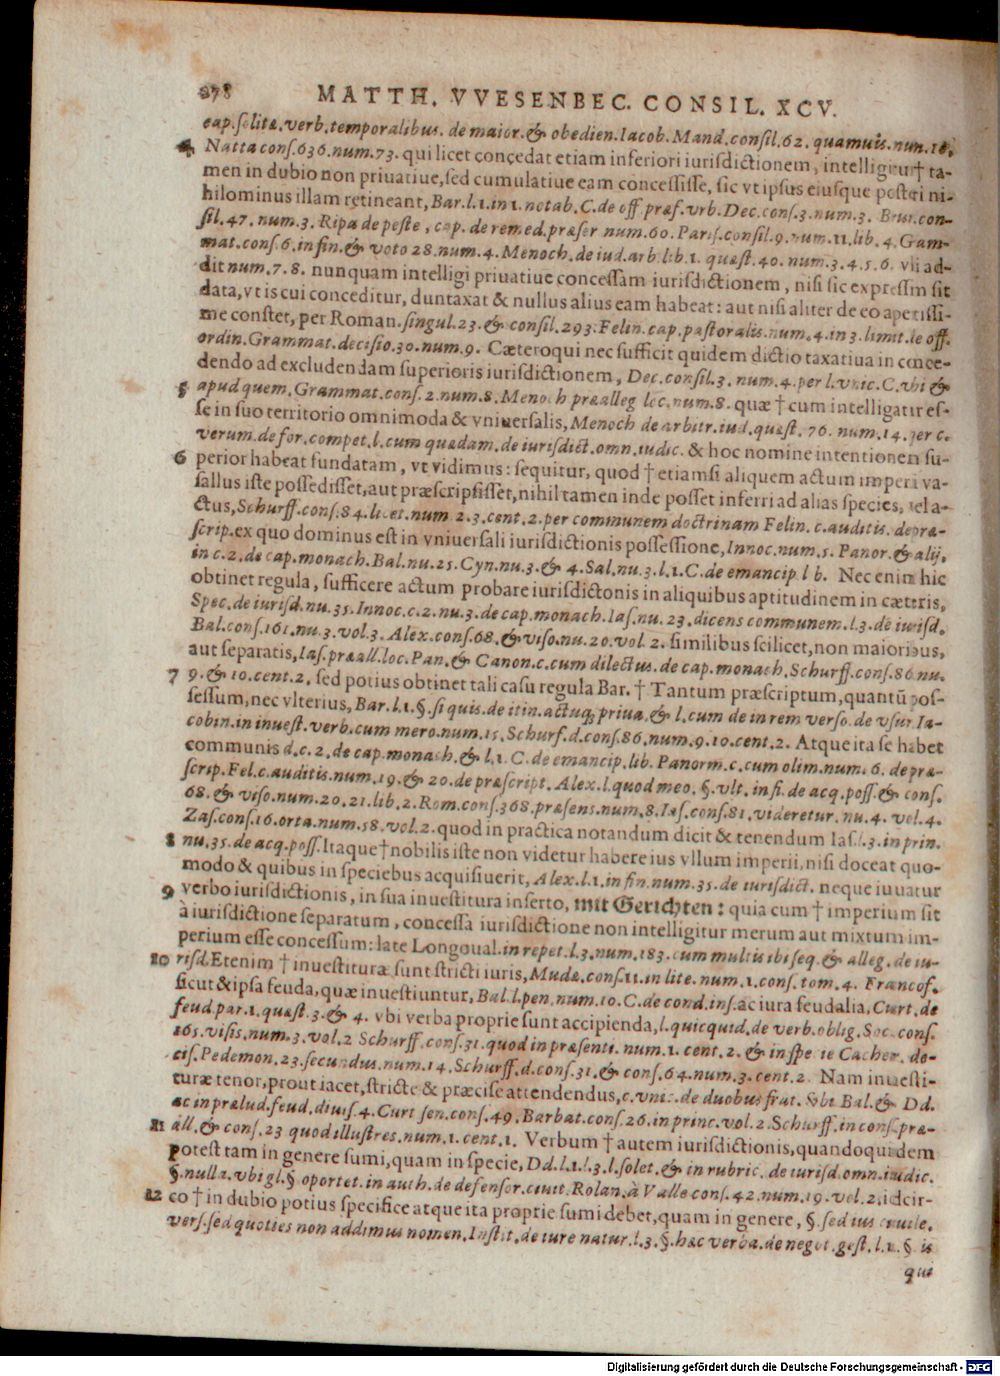 278 MATTH. VVESENBEC. CONSIL. XCV.
cap. solitæ. verb. temporalibus. de maior. & obedien. Iacob. Mand. consil. 62. quamuis. nun. 18.
4 Natta cons. 636. num. 73. qui licet concedat etiam inferiori iurisdictionem, intelligitur † ta-
men in dubio non priuatiue, sed cumulatiue eam concessisse, sic vt ipsus eiusque posteri ni-
hilominus illam retineant, Bar. l. 1. in 1. notab. C. de off. præf. vrb. Dec. cons. 3. num. 3. Brun. con-
sil. 47. num. 3. Ripa de peste, cap. de remed. præser num. 60. Paris. consil. 9. num. 11. lib. 4. Gam-
mat. cons. 6. in fin. & voto 28. num. 4. Menoch. de iud. arb. lib. 1. quæst. 40. num. 3. 4. 5. 6. vli ad-
dit num. 7. 8. nunquam intelligi priuatiue concessam iurisdictionem, nisi sic expressim sit
data, vt is cui conceditur, duntaxat & nullus alius eam habeat: aut nisi aliter de eo apetissi-
me constet, per Roman. singul. 23. & consil. 293. Felin. cap. pastoralis. num. 4. in 3. limit. de off.
ordin. Grammat. decisio. 30. num. 9. Cæteroqui nec sufficit quidem dictio taxatiua in conce-
dendo ad excludendam superioris iurisdictionem, Dec. consil. 3. num. 4. per l. vnic. C. vbi &
5 apud quem. Grammat. cons. 2. num. 8. Menoch præalleg loc. num. 8. quæ † cum intelligatur es-
se in suo territorio omnimoda & vniuersalis, Menoch de arbitr. iud. quæst. 76. num. 14. per c.
verum. de for. compet. l. cum quædam. de iurisdict. omn. iudic. & hoc nomine intentionen su-
6 perior habeat fundatam, vt vidimus: sequitur, quod † etiamsi aliquem actum imperi va-
sallus iste possedisset, aut præscripsisset, nihil tamen inde posset inferri ad alias species, vel a-
ctus, Schurff. cons. 84. licet. num. 2. 3. cent. 2. per communem doctrinam Felin. c. auditis. de præ-
scrip. ex quo dominus est in vniuersali iurisdictionis possessione, Innoc. num. 5. Panor. & alij.
in c. 2. de cap. monach. Bal. nu. 25. Cyn. nu. 3. & 4. Sal. nu. 3. l. 1. C. de emancip. lib. Nec enim hic
obtinet regula, sufficere actum probare iurisdictonis in aliquibus aptitudinem in cæteris,
Spec. de iurisd. nu. 35. Innoc. c. 2. nu. 3. de cap. monach. Ias. nu. 23. dicens communem. l. 3. de iurisd.
Bal. cons. 161. nu. 3. vol. 3. Alex. cons. 68. & viso. nu. 20. vol. 2. similibus scilicet, non maioribus,
aut separatis, Ias. præall. loc. Pan. & Canon. c. cum dilectus. de cap. monach. Schurff. cons. 86. nu.
7 9. & 10. cent. 2. sed potius obtinet tali casu regula Bar. † Tantum præscriptum, quantũ pos-
sessum, nec vlterius, Bar. l. 1. §. si quis. de itin. actuq; priua. & l. cum de in rem verso. de vsur. Ia-
cobin. in inuest. verb. cum mero. num. 15. Schurf. d. cons. 86. num. 9. 10. cent. 2. Atque ita se habet
communis d. c. 2. de cap. monach. & l. 1. C. de emancip. lib. Panorm. c. cum olim. num. 6. de præ-
scrip. Fel. c. auditis. num. 19. & 20. de præscript. Alex. l. quod meo. §. vlt. in fi. de acq. poss. & cons.
68. & viso. num. 20. 21. lib. 2. Rom. cons. 368. præsens. num. 8. Ias. cons. 81. videretur. nu. 4. vol. 4.
Zas. cons. 16. orta. num. 58. vol. 2. quod in practica notandum dicit & tenendum Ias. l. 3. in prin.
8 nu. 35. de acq. poss. Itaque † nobilis iste non videtur habere ius vllum imperii, nisi doceat quo-
modo & quibus in speciebus acquisiuerit, Alex. l. 1. in fin. num. 35. de iurisdict. neque iuuatur
9 verbo iurisdictionis, in sua inuestitura inserto, mit Gerichten: quia cum † imperium sit
à iurisdictione separatum, concessa iurisdictione non intelligitur merum aut mixtum im-
perium esse concessum: late Longoual. in repet. l. 3. num. 183. cum multis ibi seq. & alleg. de iu-
10 risd. Etenim † inuestituræ sunt stricti iuris, Mudæ. cons. 11. in lite. num. 1. cons. tom. 4. Francof.
sicut & ipsa feuda, quæ inuestiuntur, Bal. l. pen. num. 10. C. de cond. ins. ac iura feudalia, Curt. de
feud. par. 1. quæst. 3. & 4. vbi verba proprie sunt accipienda, l. quicquid. de verb. oblig. Soc. cons.
165. visis. num. 3. vol. 2 Schurff. cons. 31. quod in præsenti. num. 1. cent. 2. & in specie Cacher. de-
cis. Pedemon. 23. secundus. num. 14. Schurff. d. cons. 31. & cons. 64. num. 3. cent. 2. Nam inuesti-
turæ tenor, prout iacet, stricte & præcise attendendus, c. vnic. de duobus frat. vbi Bal. & Dd.
ac in prælud. feud. diuis. 4. Curt sen. cons. 49. Barbat. cons. 26. in princ. vol. 2. Schurff. in cons. præ-
11 all. & cons. 23 quod illustres. num. 1. cent. 1. Verbum † autem iurisdictionis, quandoquidem
potest tam in genere sumi, quam in specie, Dd. l. 1. l. 3. l. solet. & in rubric. de iurisd. omn. iudic.
§. nulla. vbi gl. § oportet. in auth. de defensor. ciuit. Rolan. à Valle cons. 42. num. 19. vol. 2. idcir-
12 co † in dubio potius specifice atque ita proprie sumi debet, quam in genere, §. sed ius ciuile.
vers. sed quoties non addimus nomen. Instit. de iure natur. l. 3. §. hæc verba. de negot. gest. l. 1. § is
qui
Digitalisierung gefördert durch die Deutsche Forschungsgemeinschaft - DFG